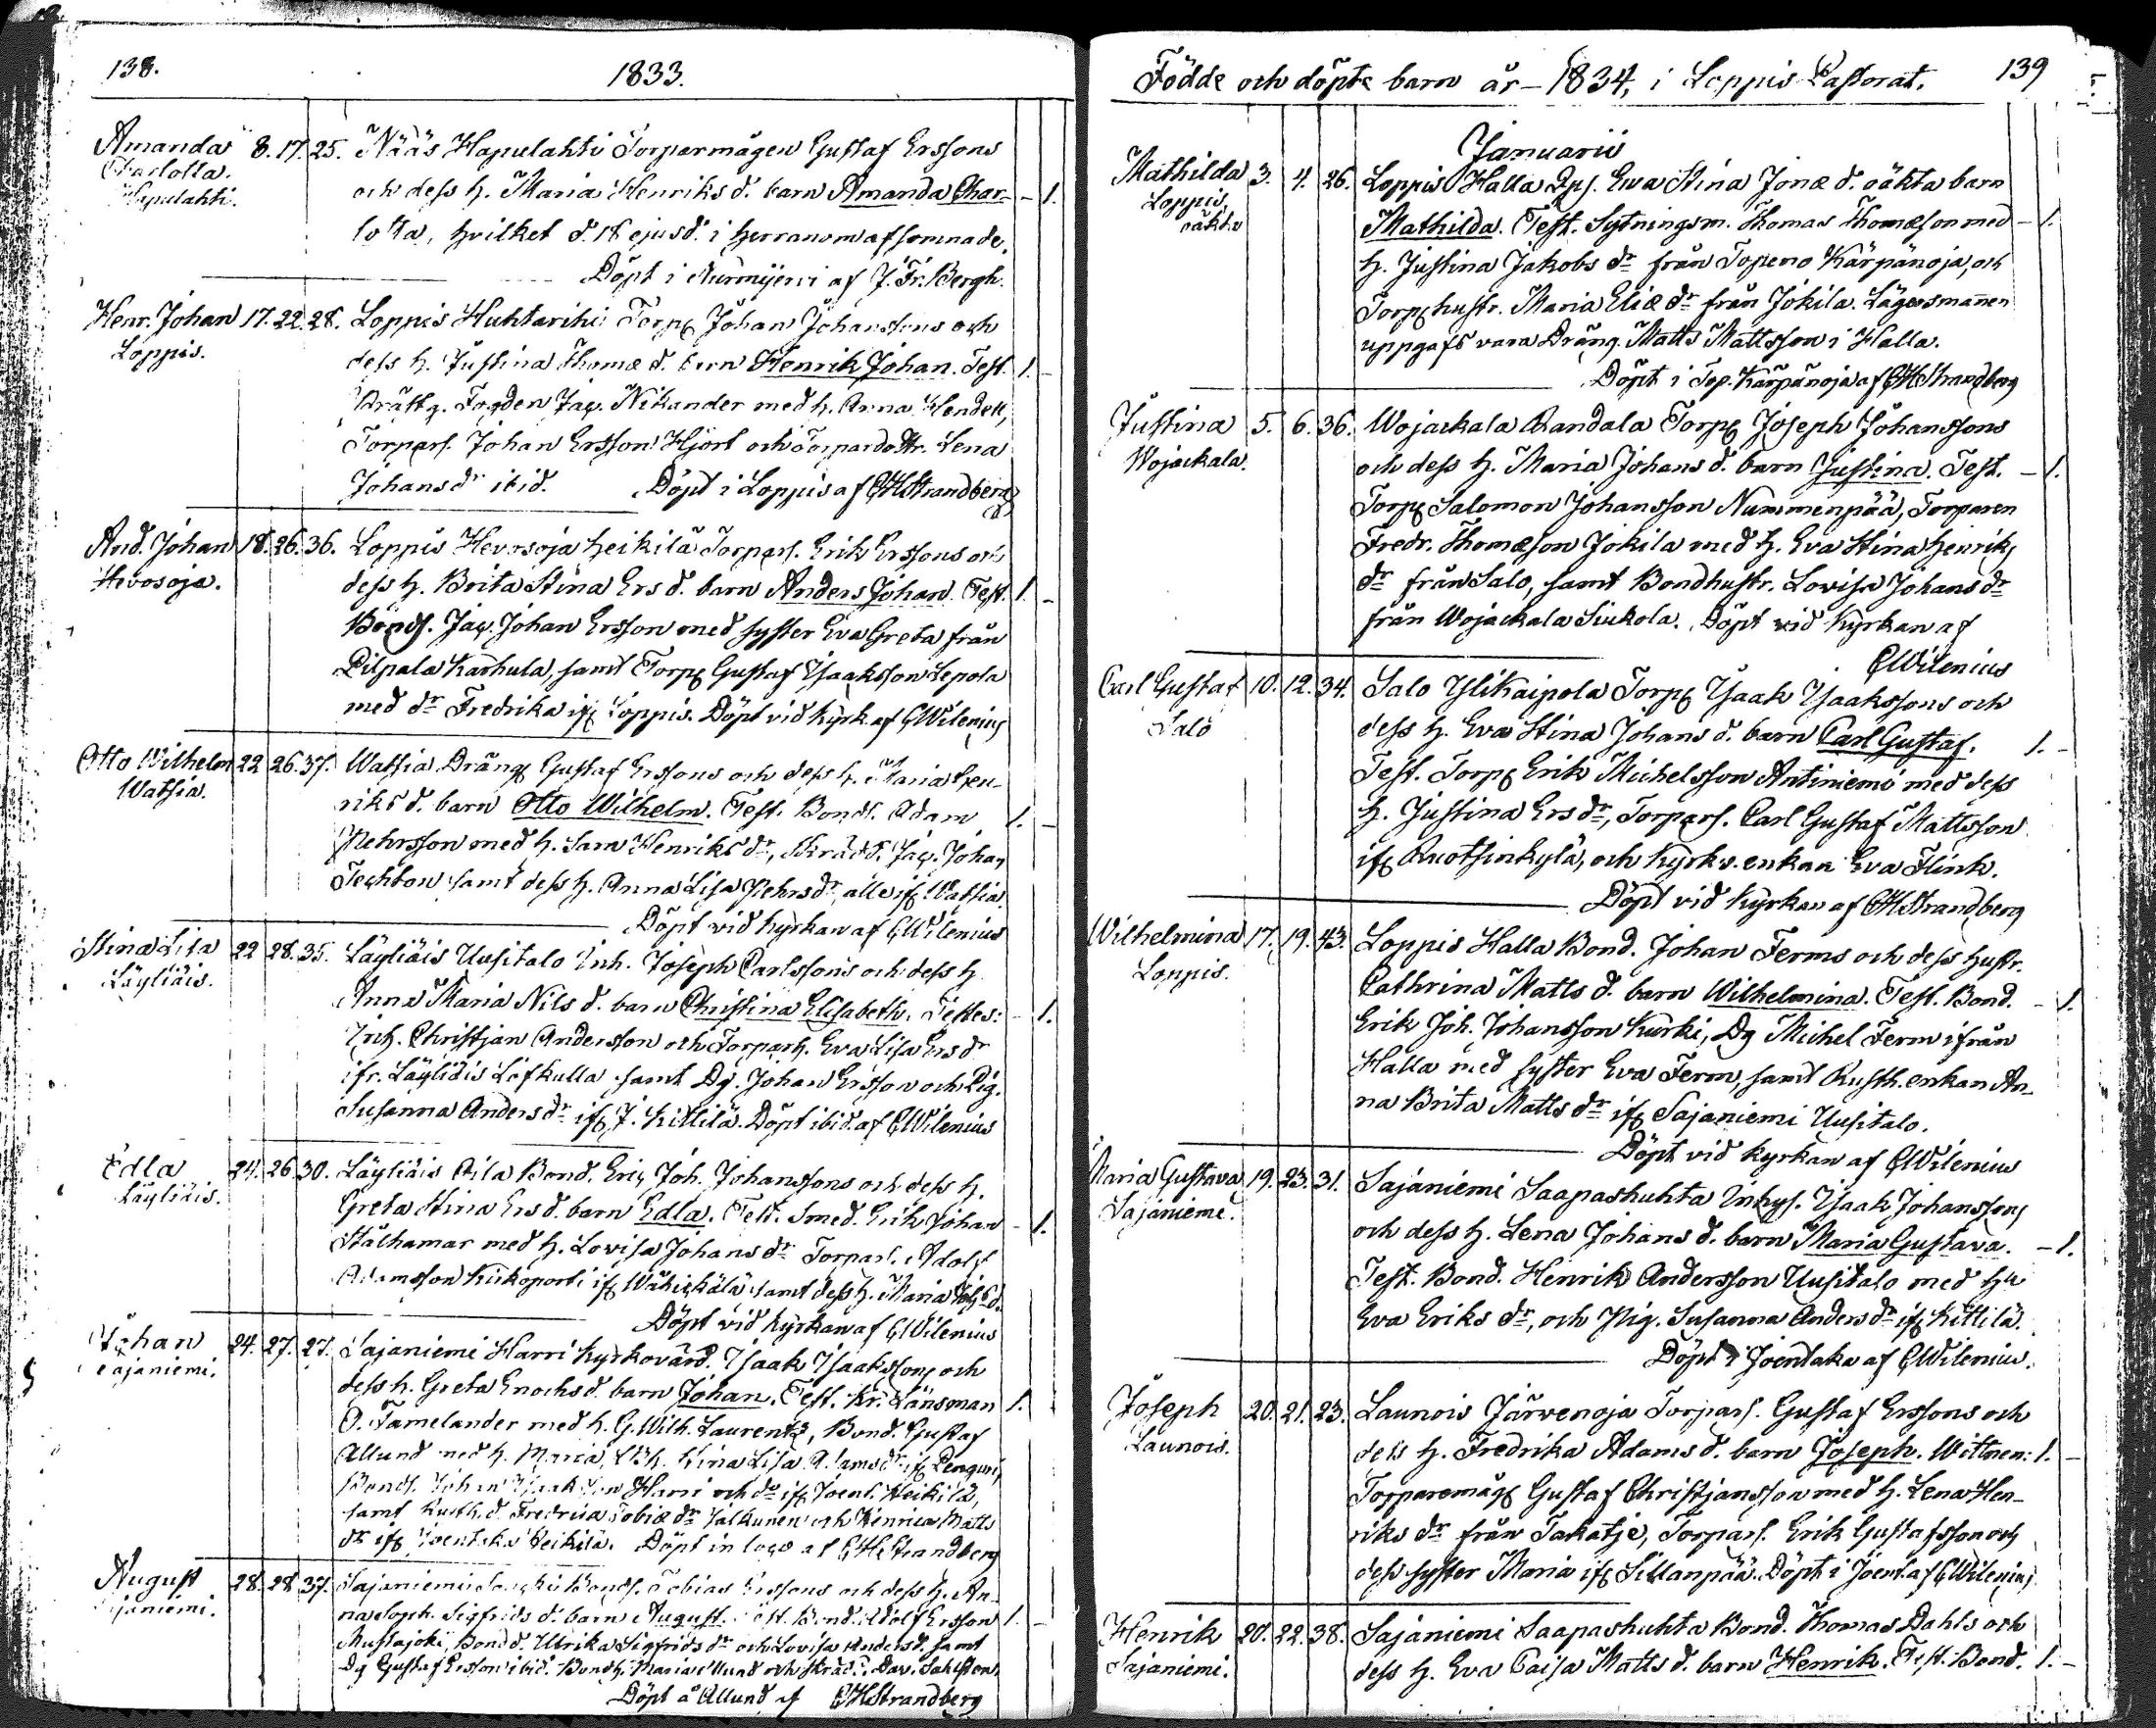 138.
1833.
Amanda 8. 17. 25. Nääs Hapulahti Torparmågen Gustaf Erssons
Charlotta.
Hapulahti.
och dess h. Maria Henriks d. barn Amanda Char- - 1.
lotta, hvilket d. 18 ejusd. i Herranom afsomnade.
Döpt i Nurmijervi af J. Fr. Bergh.
Henr. Johan 17. 22. 28. Loppis Huhtarihi Torp Johan Johanssons och
Loppis.
dess h. Justina Thomæ d. barn Henrik Johan. Test. 1. -
Fogden Jac. Nikander med h. Anna
Torpars. Johan Ersson Hjort och Torpardottr. Lena
Johans dr ibid. Döpt i Loppis af CHStrandberg
And. Johan 18. 26. 36. Loppis Hevosoja Heikilä Torpars. Erik Erssons och
Hevosoja.
dess h. Brita Stina Ers d. barn Anders Johan. Test. 1. -
Bonds. Jac. Johan Ersson med syster Eva Greta från
Pilpala Karhula, samt Torp Gustaf Isaaksson Lepola
med dr Fredrika ifr Loppis. Döpt vid Kyrk. af CWilenius
Otto Wilhelm 22 26. 37. Watsia Dräng Gustaf Erssons och dess h. Maria Hen-
Watsia.
riks d. barn Otto Wilhelm. Test. Bonds. Adam 1. -
Mehrsson med h. Sara Henriks dr, Skrädd. Jac. Johan
samt dess h. Anna Lisa Mehrs dr, alle ifr Watsia.
Döpt vid kyrkan af CWilenius
Stina Lisa 22 28. 35. Läyliäis Uusitalo Inh. Joseph Carlssons och dess h.
Läyliäis.
Anna Maria Nils d. barn Christina Elisabeth. Testes: - 1.
Inh. Christjan Andersson och Torparh. Eva Lisa Ers dr
ifr. Läyliäis Löfkulla samt Dg. Johan Ersson och Pig.
Susanna Anders dr ifr J. Kittilä. Döpt ibid. af CWilenius
Edla 24. 26 30. Läyliäis Bond. Eric Joh. Johanssons och dess h.
Läyliäis.
Greta Stina Ers d. barn Edla. Test. Smed. Erik Johan - 1.
Stålhamar med h. Lovisa Johans dr Torpars. Adolf
Adamsson Kiskoporti ifr samt dess h. Maria
Döpt vid Kyrkan af CWilenius
Johan 24. 27. 27. Sajaniemi Harri Kyrkovärd. Isaak Isaakssons och
Sajaniemi.
dess h. Greta Enochs d. barn Johan. Test. Kr. Länsman 1.
O. Tamelander med h. G. Wilh. Laurentz, Bond. Gustaf
Allund med h. Maria, Stina Lisa Adams dr ifr
Bonds. Johan Isaaksson Harri och dr ifr Joent. Heikilä,
samt Fredrica Tobiæ dr och Henrica Matts
dr ifr Joentaka Heikilä. Döpt in loco af CHStrandberg
August 28. 28 37. Sajaniemi Bonds. Tobias Erssons och dess h. An-
Sajaniemi.
na Soph. Sigfrids d. barn August. Test. Bond. Adolf Ersson 1. -
Mustajoki, Bondd. Ulrika Sigfrids dr och Lovisa Anders d. samt
Dg Gustaf Ersson ibid. Bondh. Maria Allund och Skrädd. Dav.
Döpt å Allund af CHStrandberg
Födde och döpte barn år - 1834, i Loppis Pastorat. 139
Januarii
Mathilda 3. 4. 26. Loppis Halla Qps. Ewa Stina Jonæ d. oäkta barn
Loppis,
oäkta
Mathilda. Test. Sytningsm. Thomas Thomæson med - 1.
h. Justina Jakobs dr från Topeno Kärpänoja, och
Torp hustr. Maria Eliæ dr från Jokila. Lägersmannen
uppgafs vara Dräng. Matts Mattsson i Halla.
Döpt i Top. Kärpänoja af CHStrandberg
Justina 5. 6. 36. Wojackala Randala Torp Joseph Johanssons
Wojackala.
och dess h. Maria Johans d. barn Justina. Test. - 1.
Torp Salomon Johansson Nummenpää, Torparen
Fredr. Thomæson Jokila med h. Eva Stina Henriks
dr från Salo, samt Bondhustr. Lovisa Johans dr
från Wojackala Siukola. Döpt vid Kyrkan af
CWilenius
Carl Gustaf 10. 12. 34. Salo Ylikaipola Torp Isaak Isaakssons och
Salo
dess h. Eva Stina Johans d. barn Carl Gustaf. 1. -
Test. Torp Erik Michelsson Antiniemi med dess
h. Justina Ers dr, Torpars. Carl Gustaf Mattsson
ifr Ruotsinkylä, och Kyrks. enkan Eva Flink.
Döpt vid Kyrkan af CHStrandberg
Wilhelmina 17. 19. 43. Loppis Halla Bond. Johan Ferms och dess hustr.
Loppis.
Cathrina Matts d. barn Wilhelmina. Test. Bond. - 1.
Erik Joh. Johansson Kurki, Dg Michel Ferm ifrån
Halla med syster Eva Ferm, samt Rusth. enkan An-
na Brita Matts dr ifr Sajaniemi Uusitalo.
Döpt vid Kyrkan af CWilenius
Maria Gustava 19. 23. 31. Sajaniemi Saapashuhta Inhys. Isaak Johanssons
Sajaniemi.
och dess h. Lena Johans d. barn Maria Gustava. - 1.
Test. Bond. Henrik Andersson Uusitalo med hu
Eva Eriks dr, och Pig. Susanna Anders dr ifr Kittilä.
Döpt i Joentaka af CWilenius.
Joseph 20. 21. 23. Launois Järvenoja Torpars. Gustaf Erssons och
Launois.
dess h. Fredrika Adams d. barn Joseph. Wittnen: 1. -
Torparemåg Gustaf Christjansson med h. Lena Hen-
riks dr från Takatje, Torpars. Erik Gustafsson och
dess syster Maria ifr Sillanpää. Döpt i Joent. af CWilenius
Henrik 20. 22. 38. Sajaniemi Saapashuhta Bond. Thomas Dahls och
Sajaniemi.
dess h. Eva Caisa Matts d. barn Henrik. Test. Bond. 1. -